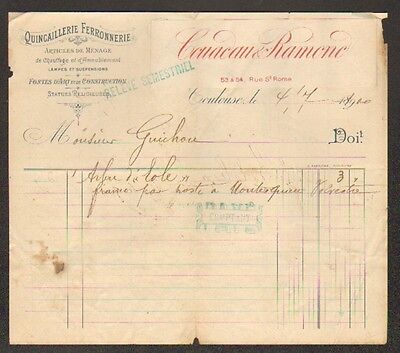 QUINCAILLERIE FERRONNERIE
ARTICLES DE MÉNAGE
de Chauffage et d'Ameublement
LAMPES ET SUSPENSIONS
FONTES D'ART ET DE CONSTRUCTION
STATUES RELIGIEUSES
RELEVÉ SEMESTRIEL
& Ramond
53 & 54, Rue St Rome
Toulouse, le 4/7 1900
Monsieur Guichou Doit
3
franco par poste à Montesquieu Volvestre
COMPTANT